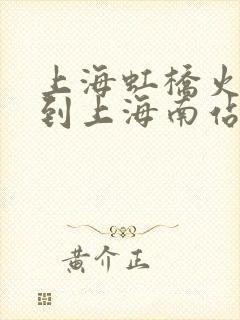 上海虹橋火
到上海南佔
黄介正